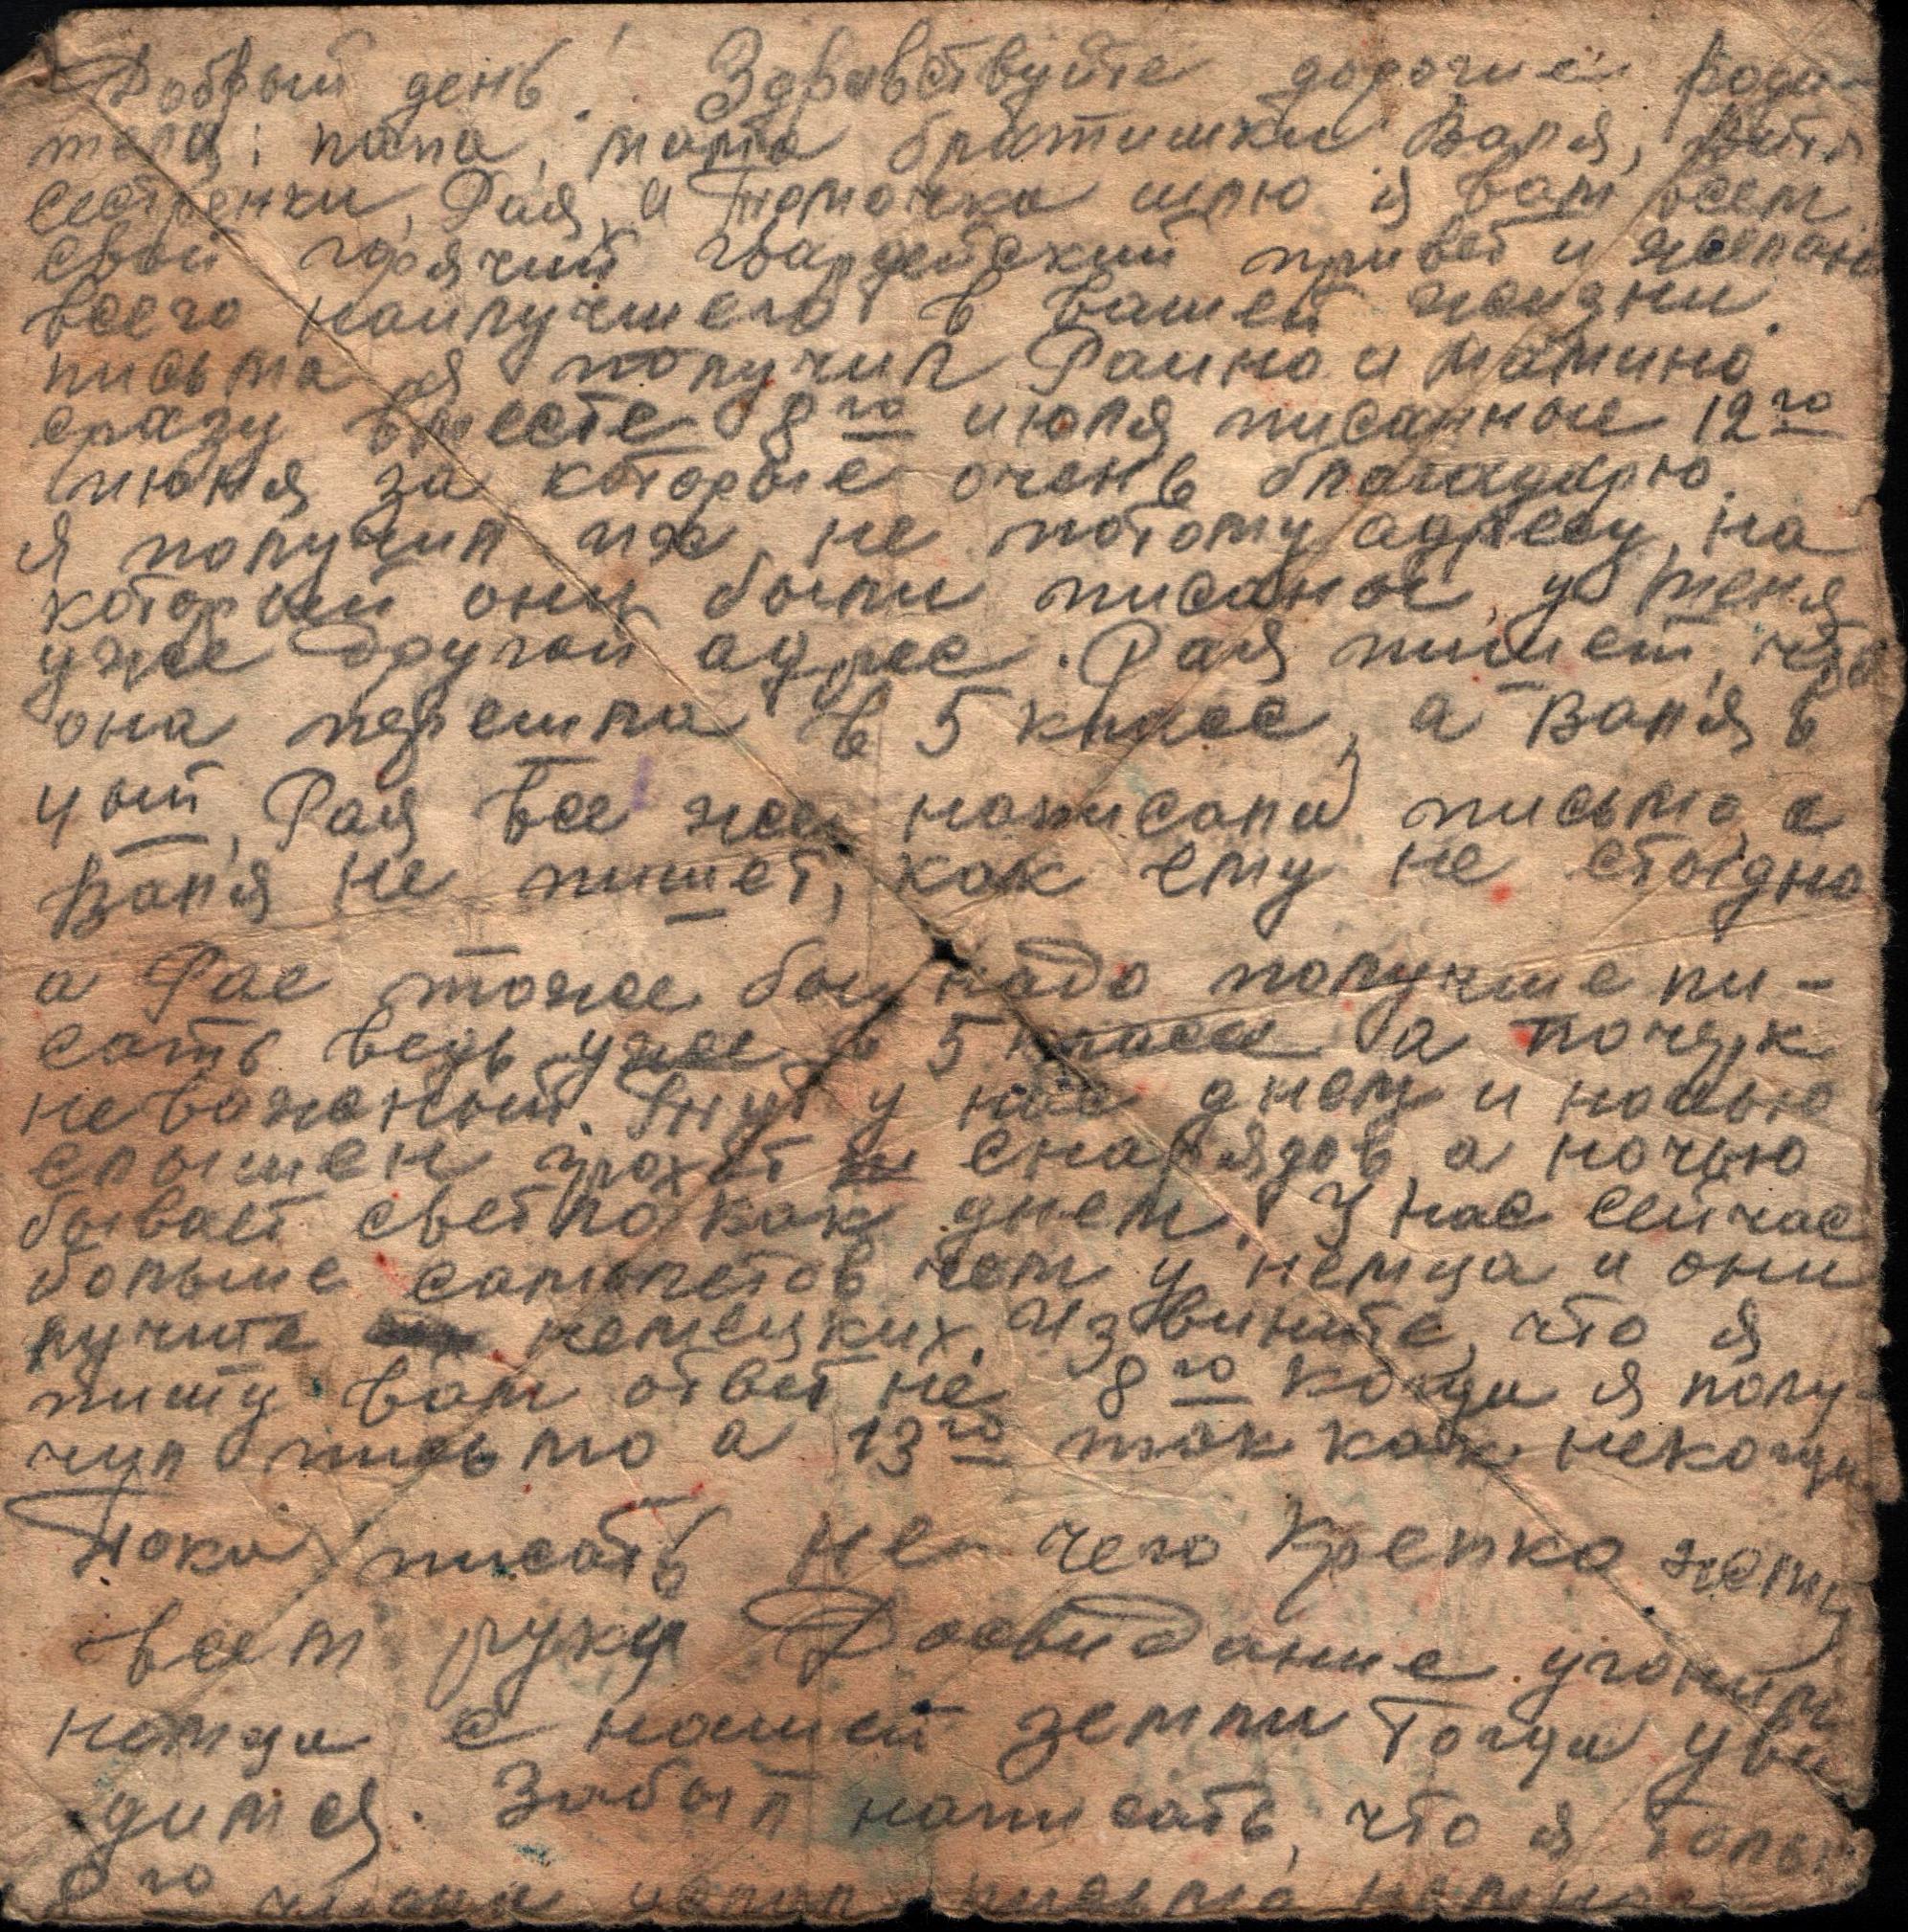 Добрый день! Здравствуйте дорогие роди-
тели: папа, мама братишки Валя, Витя
сестренки, Рая и Томочка шлю я вам всем
свой горячий гвардейский привет и желаю
всего наилучшего в вашей жизни.
письма я получил Раино и мамино
сразу вместе 8го июля писанные 12го
июня за которые очень благодарю.
Я получил их не потому адресу, на
который они были писаны у меня
уже другой адрес. Рая пишет, что
она перешла в 5 класс, а Валя в
4ый, Рая все же написала письмо, а
Валя не пишет, как ему не стыдно
а Рае тоже бы надо получше пи-
сать ведь уже в 5 классе а почерк
неваженый. Тут у нас днем и ночью
слышен грохот снарядов а ночью
бывает светло как днем. У нас сейчас
больше самолетов чем у немца и они
лучите немецких. Извините, что я
пишу вам ответ не 8го когда я полу-
чил письмо а 13го так как некогда
Пока писать не чего Крепко жму
всем руку Досвидание угоним
немца с нашей земли Тогда уви
димся. Забыл написать, что я только
8го